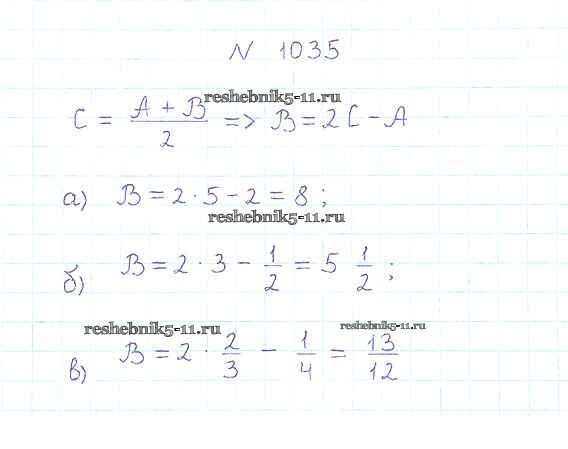 N 1035
reshebnik5-11.ru
C = (A + B)/2 => B = 2C - A
а) B = 2 · 5 - 2 = 8 ;
reshebnik5-11.ru
б) B = 2 · 3 - 1/2 = 5 1/2 ;
reshebnik5-11.ru
reshebnik5-11.ru
в) B = 2 · 2/3 - 1/4 = 13/12